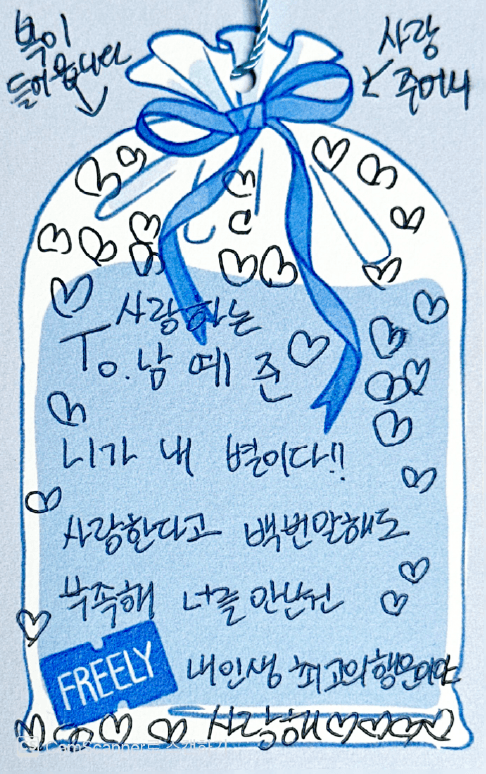 복이
들어옵니다
사랑
주머니
사랑하는
To. 남 예 준♡
니가 내 별이다!!
사랑한다고 백번말해도
부족해 너를 만난건
내인생 최고의행운이야
FREELY
사랑해♡♡♡♡